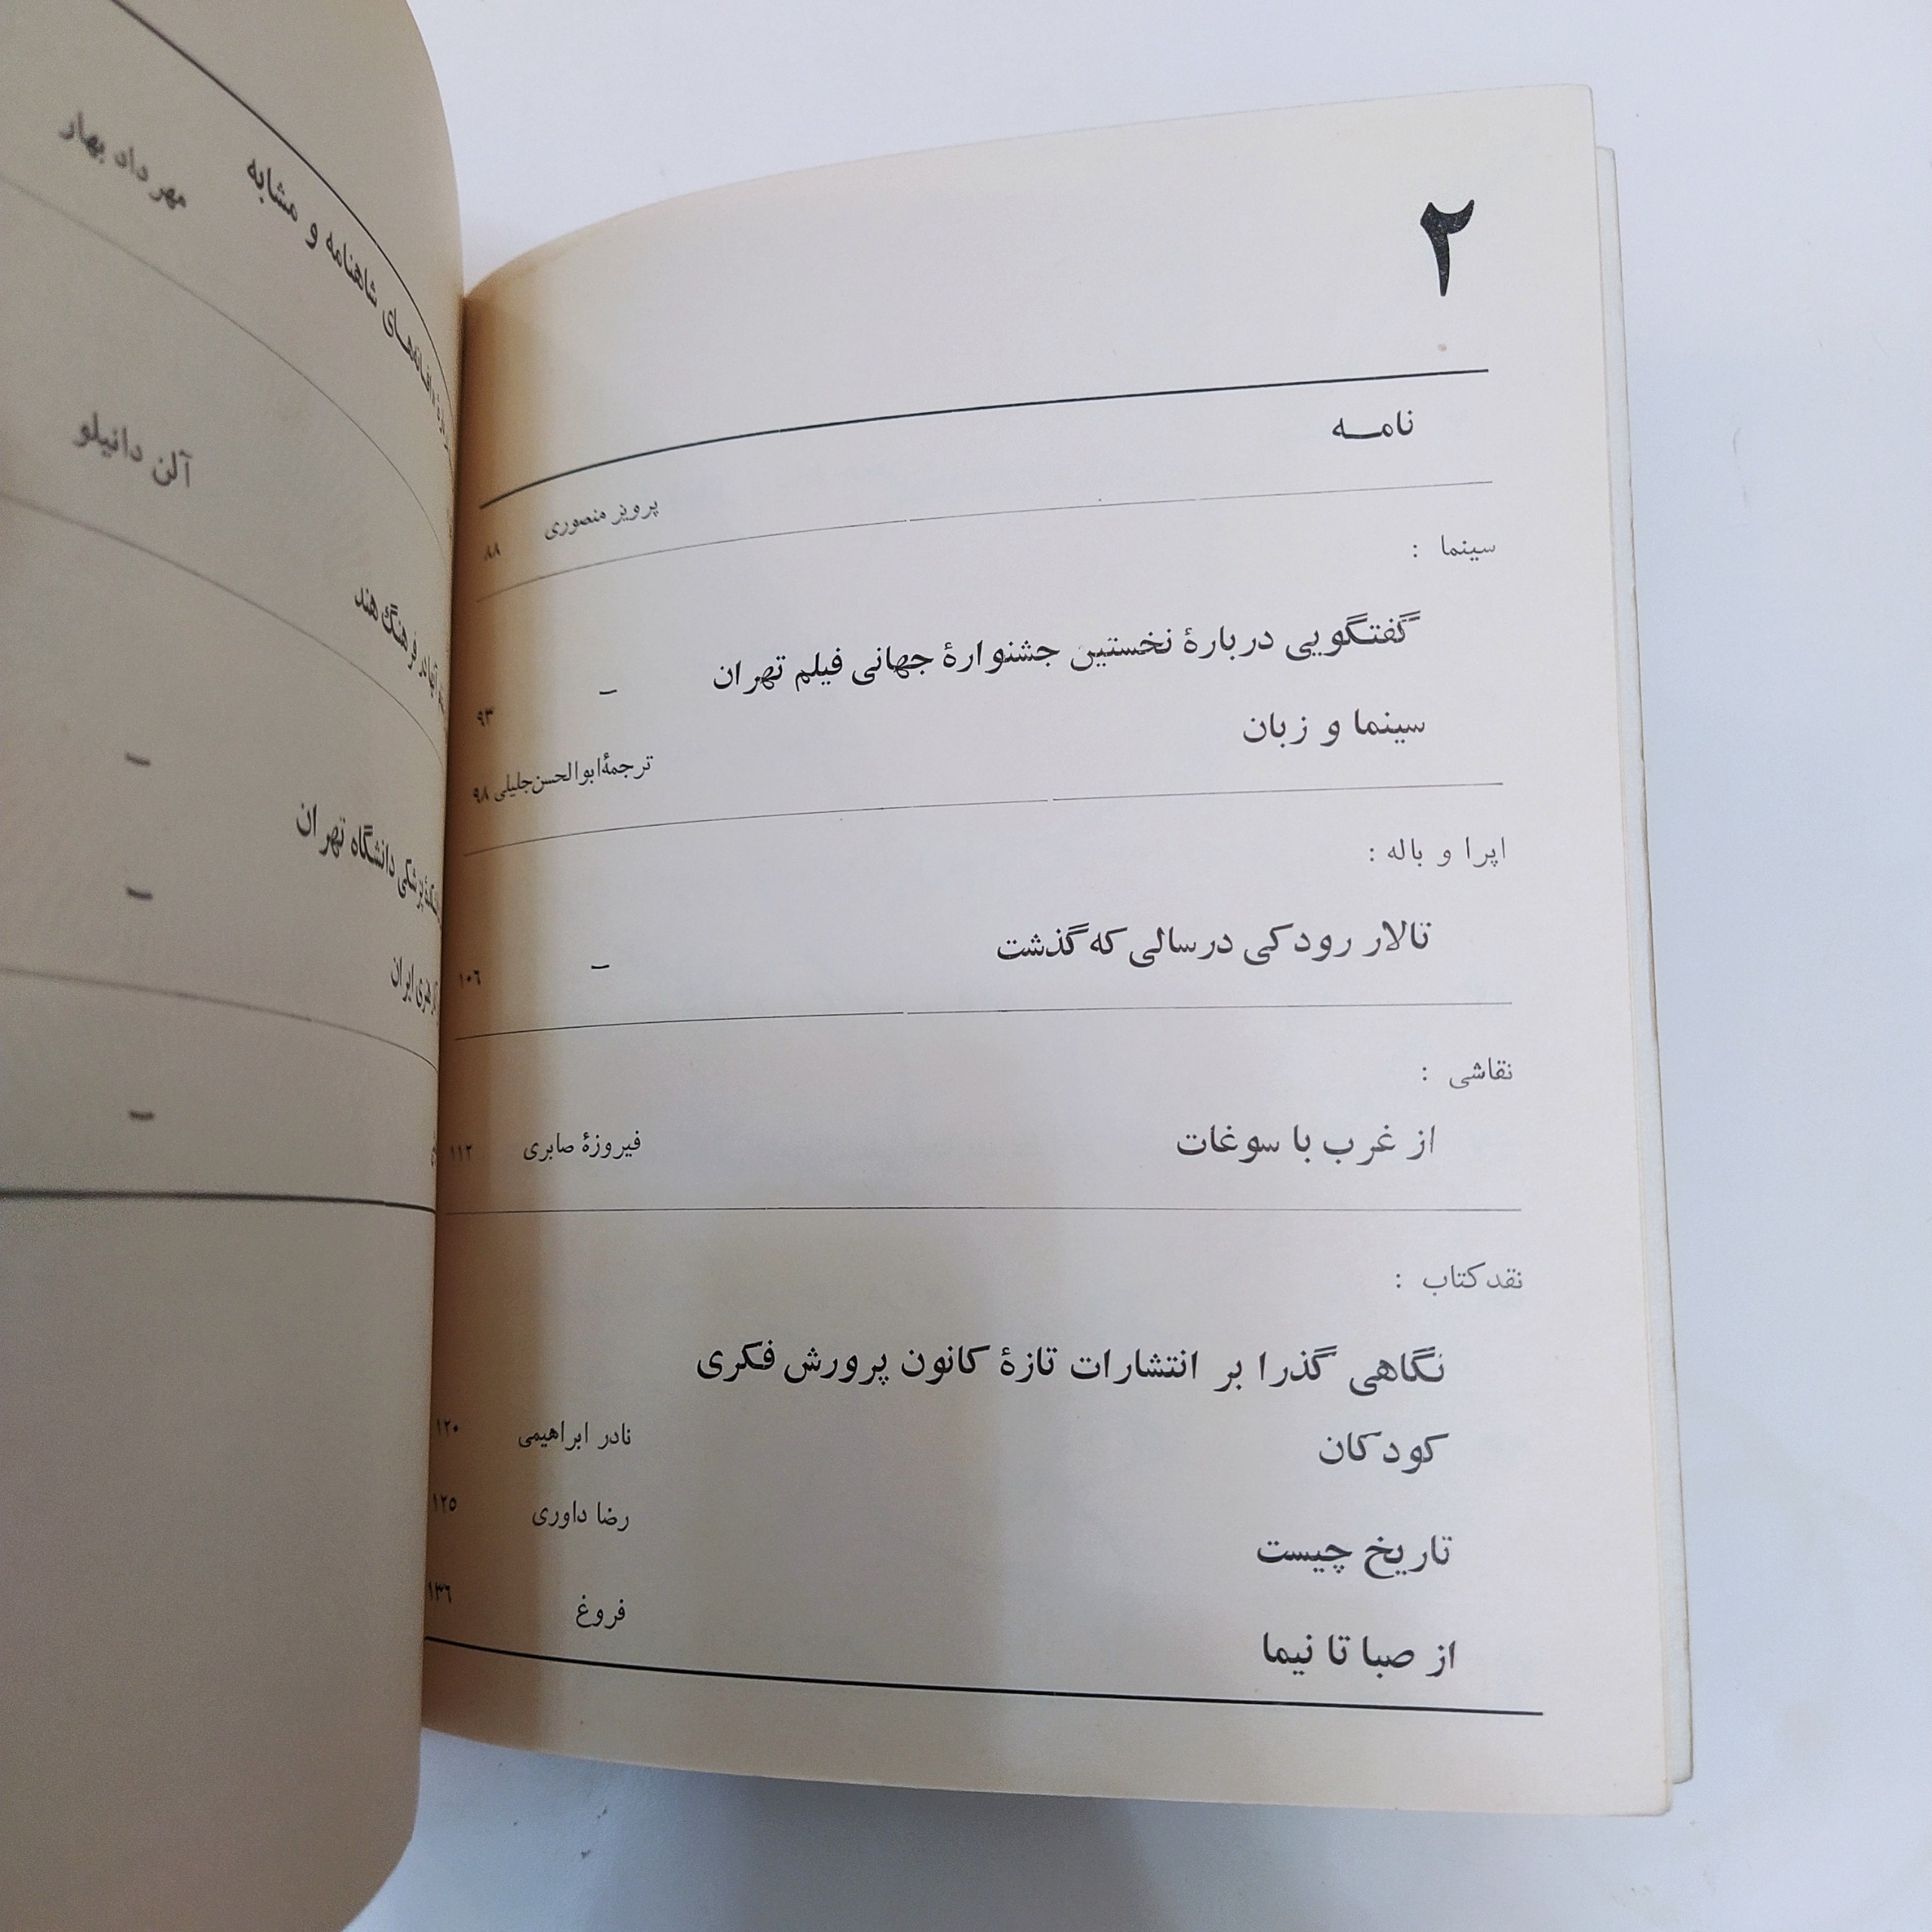 ۲
نامه پرویز منصوری ۸۸
سینما :
گفتگویی دربارهٔ نخستین جشنوارهٔ جهانی فیلم تهران – ۹۳
سینما و زبان ترجمهٔ ابوالحسن جلیلی ۹۸
اپرا و باله :
تالار رودکی در سالی که گذشت – ۱۰۶
نقاشی :
از غرب با سوغات فیروزهٔ صابری ۱۱۲
نقد کتاب :
نگاهی گذرا بر انتشارات تازهٔ کانون پرورش فکری
کودکان نادر ابراهیمی ۱۲۰
تاریخ چیست رضا داوری ۱۲۵
از صبا تا نیما فروغ ۱۳۶
شاهنامه و مشابه مهرداد بهار
آلن دانیلو
فرهنگ هند
–
دانشگاه تهران –
ایران
–